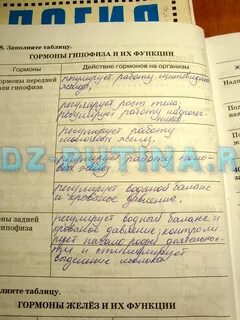 8. Заполните таблицу.
ГОРМОНЫ ГИПОФИЗА И ИХ ФУНКЦИИ
Гормоны
Действие гормонов на организм
ормоны передней
оли гипофиза
регулирует работу щитовидной
железы,
регулирует рост тела,
регулирует работу надпоче-
чников
регулирует работу
молочных желез.
регулирует работу поло-
вых желез
регулирует водяной баланс
и кровяное давление.
ормоны задней
гипофиза
регулирует водный баланс и
кровяное давление, контроли
рует начало родов деятельно-
сти и стимулирует
выделение молока
DZ-RUTINA.R
олните таблицу.
ГОРМОНЫ ЖЕЛЁЗ И ИХ ФУНКЦИИ